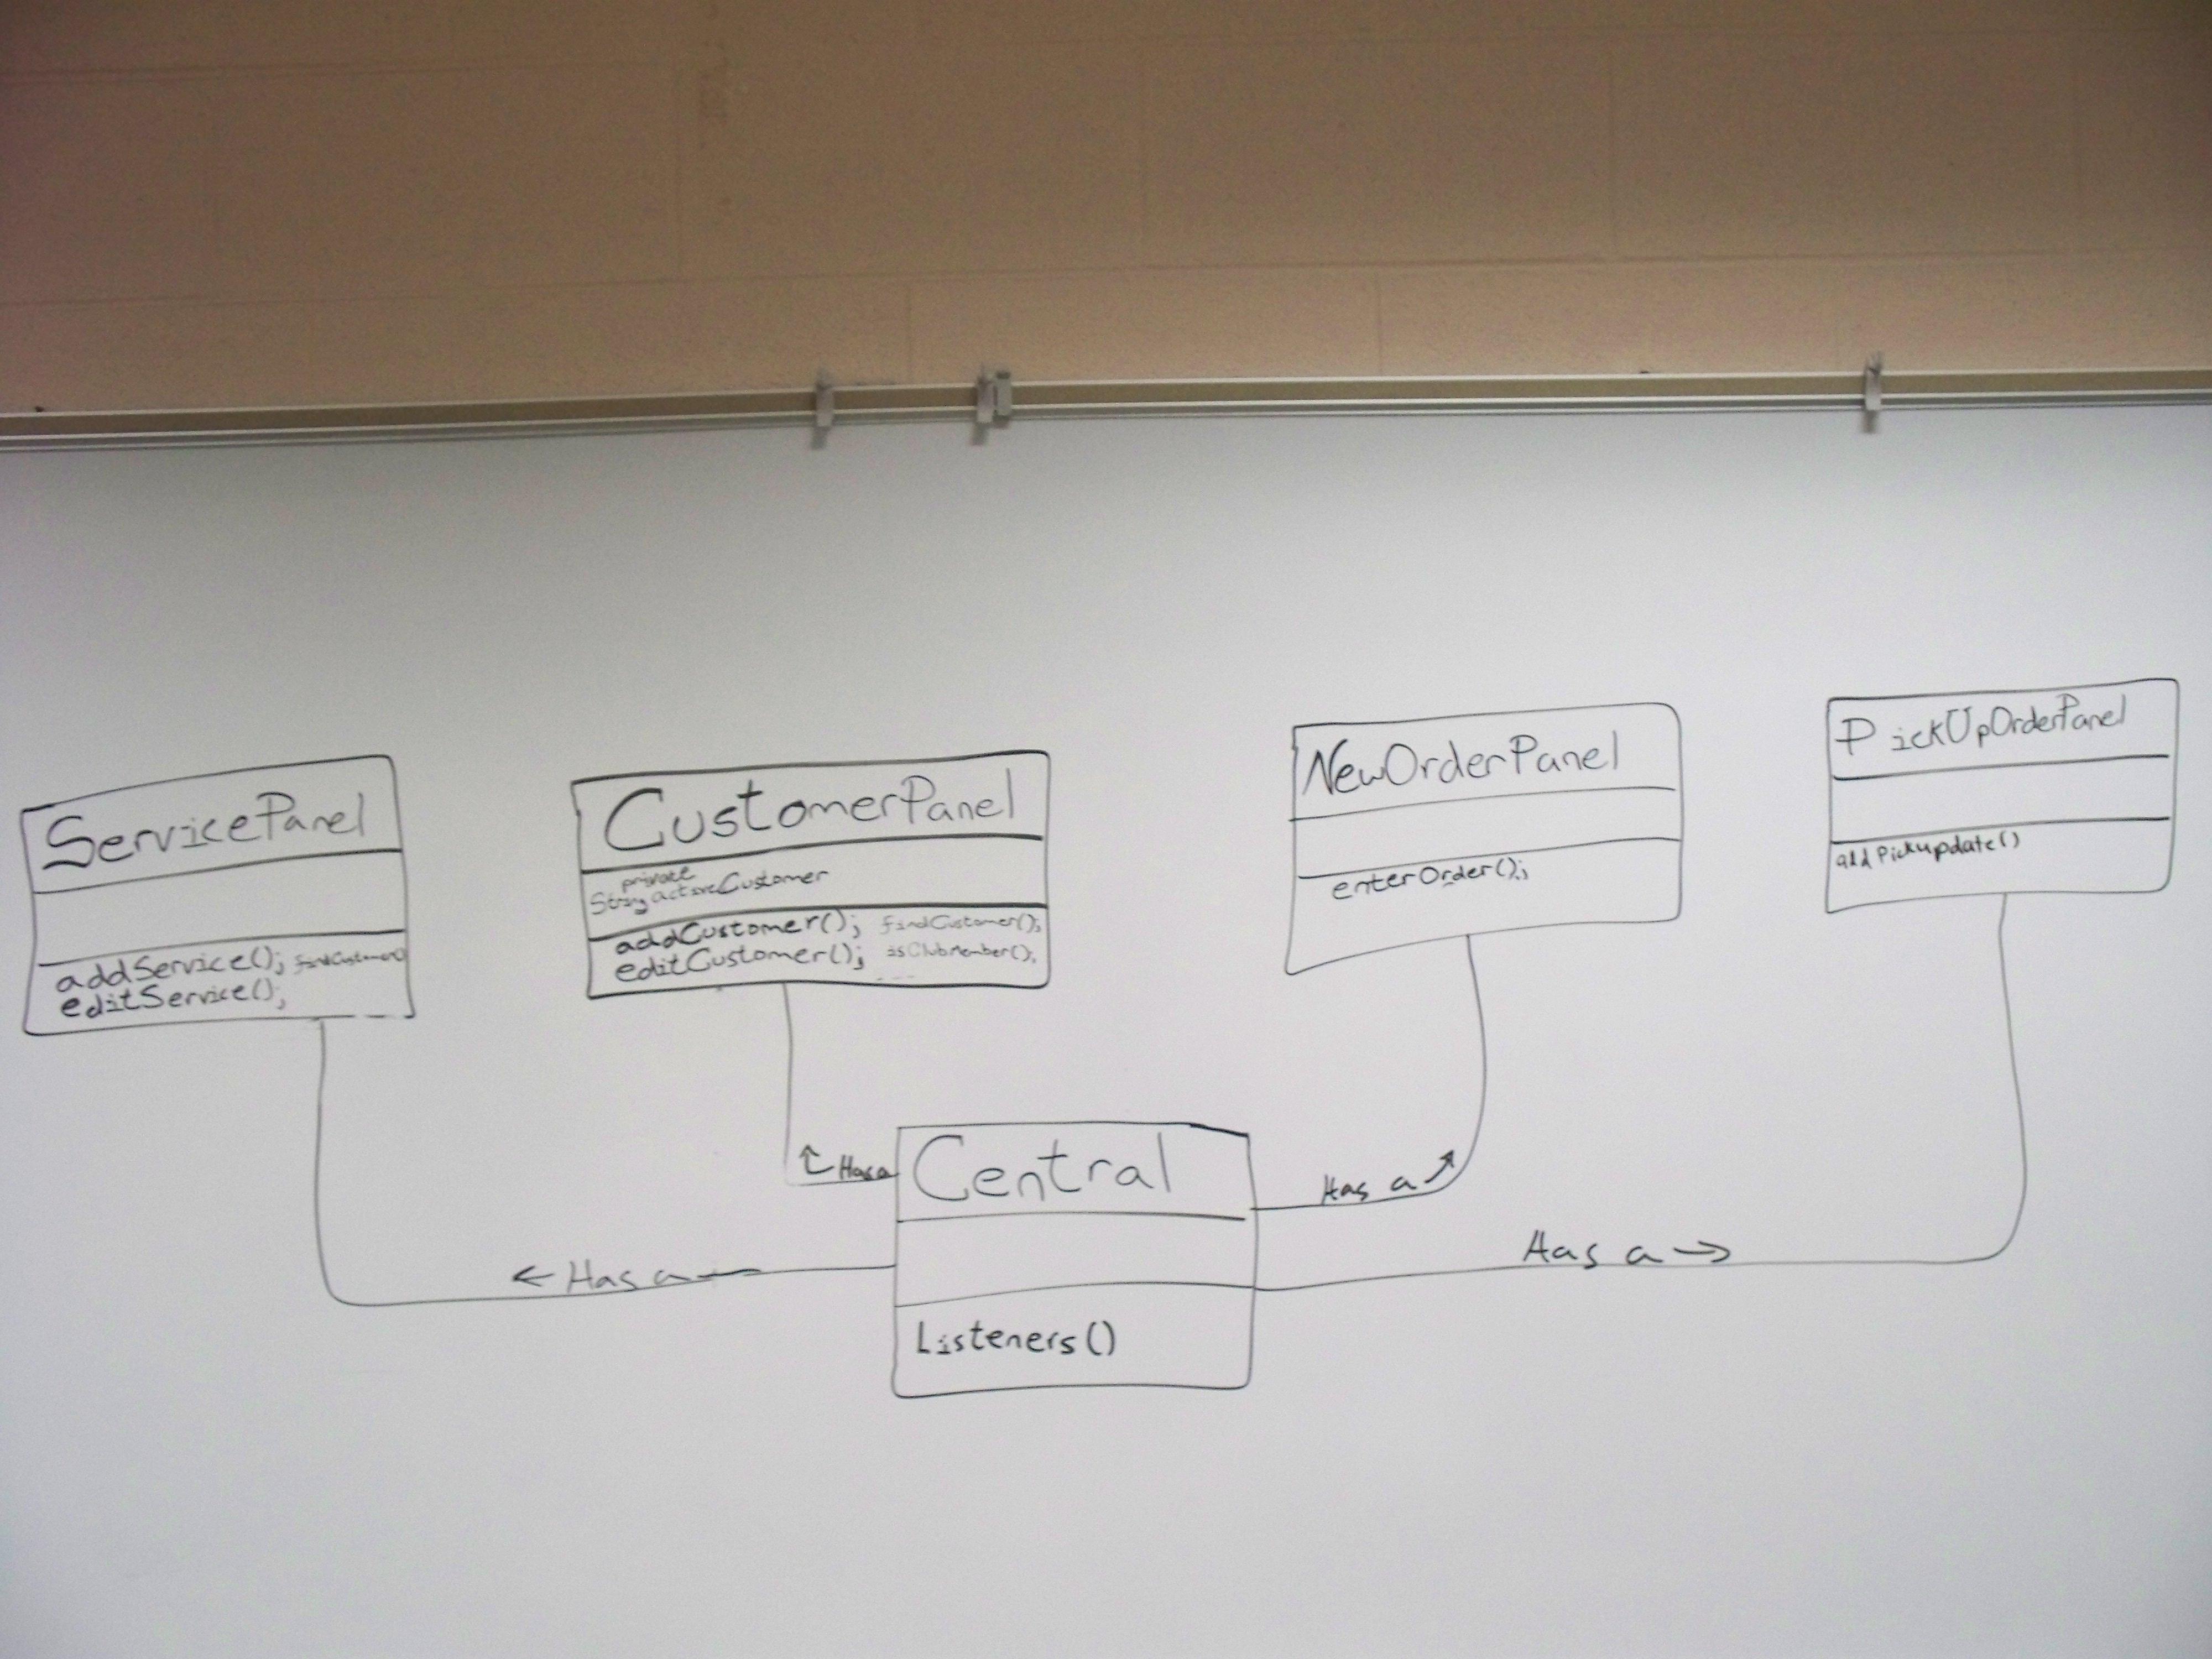 ServicePanel
addService(); findCustomer()
editService();
CustomerPanel
private
String activeCustomer
addCustomer(); findCustomer();
editCustomer(); isClubMember();
NewOrderPanel
enterOrder();
PickUpOrderPanel
addPickupdate()
Has a
Central
Listeners()
Has a
Has a
Has a